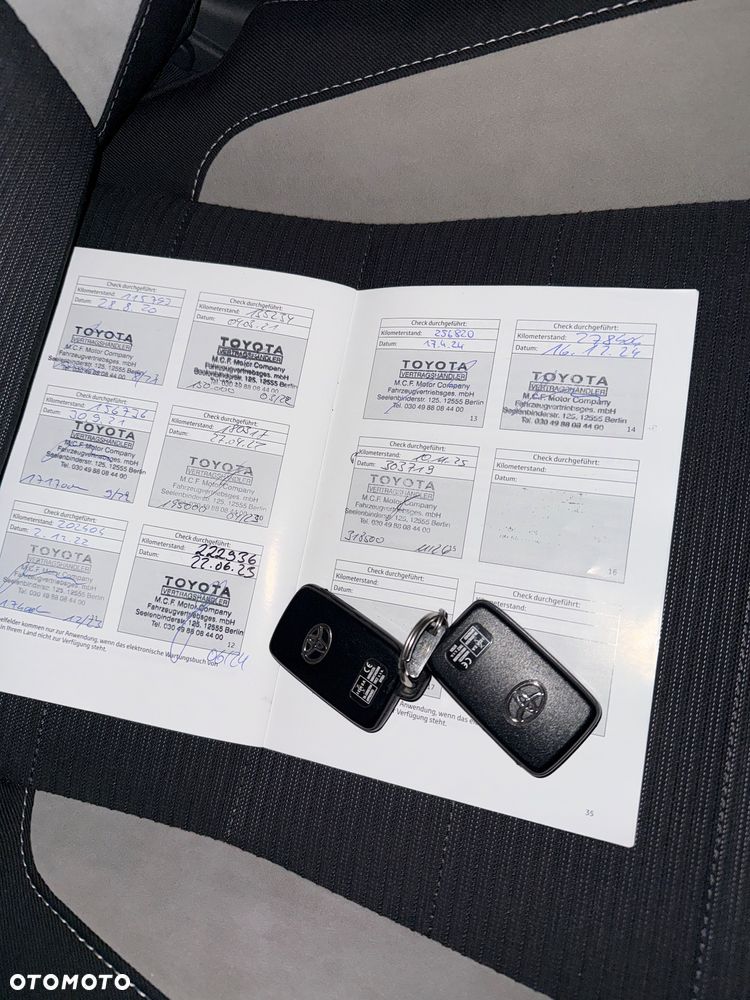 Check durchgeführt:
Kilometerstand: 115792
Datum: 28.8.20
TOYOTA
VERTRAGSHÄNDLER
M.C.F. Motor Company
Fahrzeugvertriebsges. mbH
Seelenbinderstr. 125, 12555 Berlin
Check durchgeführt:
Kilometerstand: 135234
Datum: 04.03.21
TOYOTA
VERTRAGSHÄNDLER
M.C.F. Motor Company
Fahrzeugvertriebsges. mbH
Seelenbinderstr. 125, 12555 Berlin
Tel. 030 49 88 08 44 00
150.000 03/22
Check durchgeführt:
Kilometerstand: 156726
Datum: 30.9.21
TOYOTA
VERTRAGSHÄNDLER
M.C.F. Motor Company
Fahrzeugvertriebsges. mbH
Seelenbinderstr. 125, 12555 Berlin
Tel. 030 49 88 08 44 00
9/22
Check durchgeführt:
Kilometerstand:
Datum:
TOYOTA
VERTRAGSHÄNDLER
M.C.F. Motor Company
Fahrzeugvertriebsges. mbH
Seelenbinderstr. 125, 12555 Berlin
Tel. 030 49 88 08 44 00
195000 04/23
Check durchgeführt:
Kilometerstand: 202404
Datum: 2.12.22
TOYOTA
VERTRAGSHÄNDLER
M.C.F. Motor Company
Fahrzeugvertriebsges. mbH
Seelenbinderstr. 125, 12555 Berlin
Tel. 030 49 88 08 44 00
12/23
Check durchgeführt:
Kilometerstand: 222936
Datum: 22.06.23
TOYOTA
VERTRAGSHÄNDLER
M.C.F. Motor Company
Fahrzeugvertriebsges. mbH
Seelenbinderstr. 125, 12555 Berlin
Tel. 030 49 88 08 44 00
12
06/24
elfelder kommen nur zur Anwendung, wenn das elektronische Wartungsbuch von
in Ihrem Land nicht zur Verfügung steht.
Check durchgeführt:
Kilometerstand: 256820
Datum: 17.4.24
TOYOTA
VERTRAGSHÄNDLER
M.C.F. Motor Company
Fahrzeugvertriebsges. mbH
Seelenbinderstr. 125, 12555 Berlin
Tel. 030 49 88 08 44 00
13
Check durchgeführt:
Kilometerstand:
Datum: 16.12.24
TOYOTA
VERTRAGSHÄNDLER
M.C.F. Motor Company
Fahrzeugvertriebsges. mbH
Seelenbinderstr. 125, 12555 Berlin
Tel. 030 49 88 08 44 00
14
Check durchgeführt:
Kilometerstand: 10.11.25
Datum: 303719
TOYOTA
VERTRAGSHÄNDLER
M.C.F. Motor Company
Fahrzeugvertriebsges. mbH
Seelenbinderstr. 125, 12555 Berlin
Tel. 030 49 88 08 44 00
318500 11/26
Check durchgeführt:
Datum:
16
Check durchgeführt:
Kilometerstand:
Check durchgeführt:
Anwendung, wenn das
Verfügung steht.
35
OTOMOTO